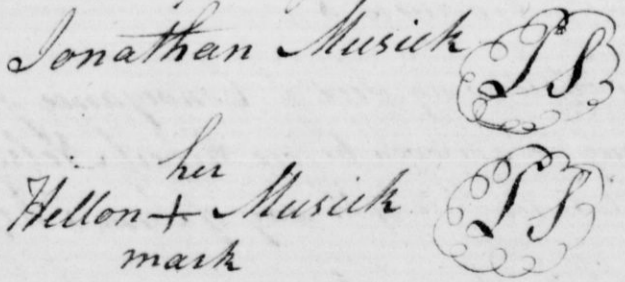 Jonathan Musick LS
her
Hellon + Musick LS
mark